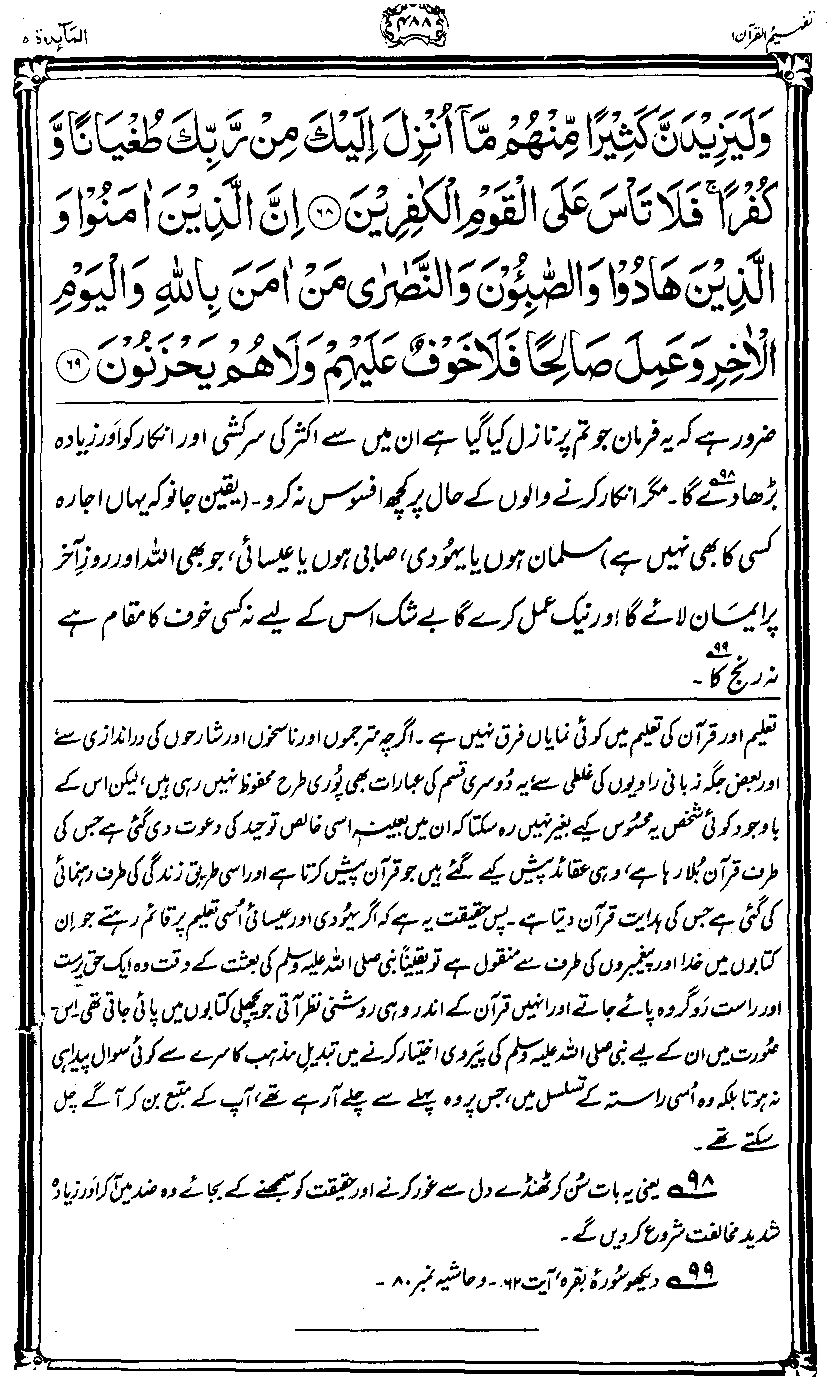 تفہیم القرآن ۱
۴۸۸
المآئدة ۵
وَلَيَزِيْدَنَّ كَثِيْرًا مِّنْهُمْ مَّآ اُنْزِلَ اِلَيْكَ مِنْ رَّبِّكَ طُغْيَانًا وَّ
كُفْرًا ۚ فَلَا تَاْسَ عَلَى الْقَوْمِ الْكٰفِرِيْنَ ﴿۶۸﴾ اِنَّ الَّذِيْنَ اٰمَنُوْا وَ
الَّذِيْنَ هَادُوْا وَالصّٰبِـُٔوْنَ وَالنَّصٰرٰى مَنْ اٰمَنَ بِاللّٰهِ وَالْيَوْمِ
الْاٰخِرِ وَعَمِلَ صَالِحًا فَلَا خَوْفٌ عَلَيْهِمْ وَلَا هُمْ يَحْزَنُوْنَ ﴿۶۹﴾
ضرور ہے کہ یہ فرمان جو تم پر نازل کیا گیا ہے ان میں سے اکثر کی سرکشی اور انکار کو اَور زیادہ
بڑھا دے گا۔۹۸ مگر انکار کرنے والوں کے حال پر کچھ افسوس نہ کرو۔ (یقین جانو کہ یہاں اجارہ
کسی کا بھی نہیں ہے) مسلمان ہوں یا یہُودی، صابی ہوں یا عیسائی، جو بھی اللہ اور روزِ آخر
پر ایمان لائے گا اور نیک عمل کرے گا بے شک اس کے لیے نہ کسی خوف کا مقام ہے
نہ رنج کا۔۹۹
تعلیم اور قرآن کی تعلیم میں کوئی نمایاں فرق نہیں ہے۔ اگرچہ مترجموں اور ناسخوں اور شارحوں کی دراندازی سے
اور بعض جگہ زبانی راویوں کی غلطی سے یہ دُوسری قسم کی عبارات بھی پُوری طرح محفوظ نہیں رہی ہیں، لیکن اس کے
باوجود کوئی شخص یہ محسُوس کیے بغیر نہیں رہ سکتا کہ ان میں بعینہٖ اسی خالص توحید کی دعوت دی گئی ہے جس کی
طرف قرآن بُلا رہا ہے، وہی عقائد پیش کیے گئے ہیں جو قرآن پیش کرتا ہے اور اسی طریقِ زندگی کی طرف رہنمائی
کی گئی ہے جس کی ہدایت قرآن دیتا ہے۔ پس حقیقت یہ ہے کہ اگر یہودی اور عیسائی اُسی تعلیم پر قائم رہتے جو اِن
کتابوں میں خدا اور پیغمبروں کی طرف سے منقول ہے تو یقیناً نبی صلی اللہ علیہ وسلم کی بعثت کے وقت وہ ایک حق پرست
اور راست رَو گروہ پائے جاتے اور انہیں قرآن کے اندر وہی روشنی نظر آتی جو پچھلی کتابوں میں پائی جاتی تھی۔ اِس
صُورت میں ان کے لیے نبی صلی اللہ علیہ وسلم کی پَیروی اختیار کرنے میں تبدیلِ مذہب کا سرے سے کوئی سوال پیدا ہی
نہ ہوتا بلکہ وہ اُسی راستہ کے تسلسل میں، جس پر وہ پہلے سے چلے آ رہے تھے، آپ کے متبع بن کر آگے چل
سکتے تھے۔
۹۸ یعنی یہ بات سُن کر ٹھنڈے دل سے غور کرنے اور حقیقت کو سمجھنے کے بجائے وہ ضد میں آ کر اَور زیادہ
شدید مخالفت شروع کر دیں گے۔
۹۹ دیکھو سُورۂ بقرہ، آیت ۶۲۔ و حاشیہ نمبر ۸۰۔